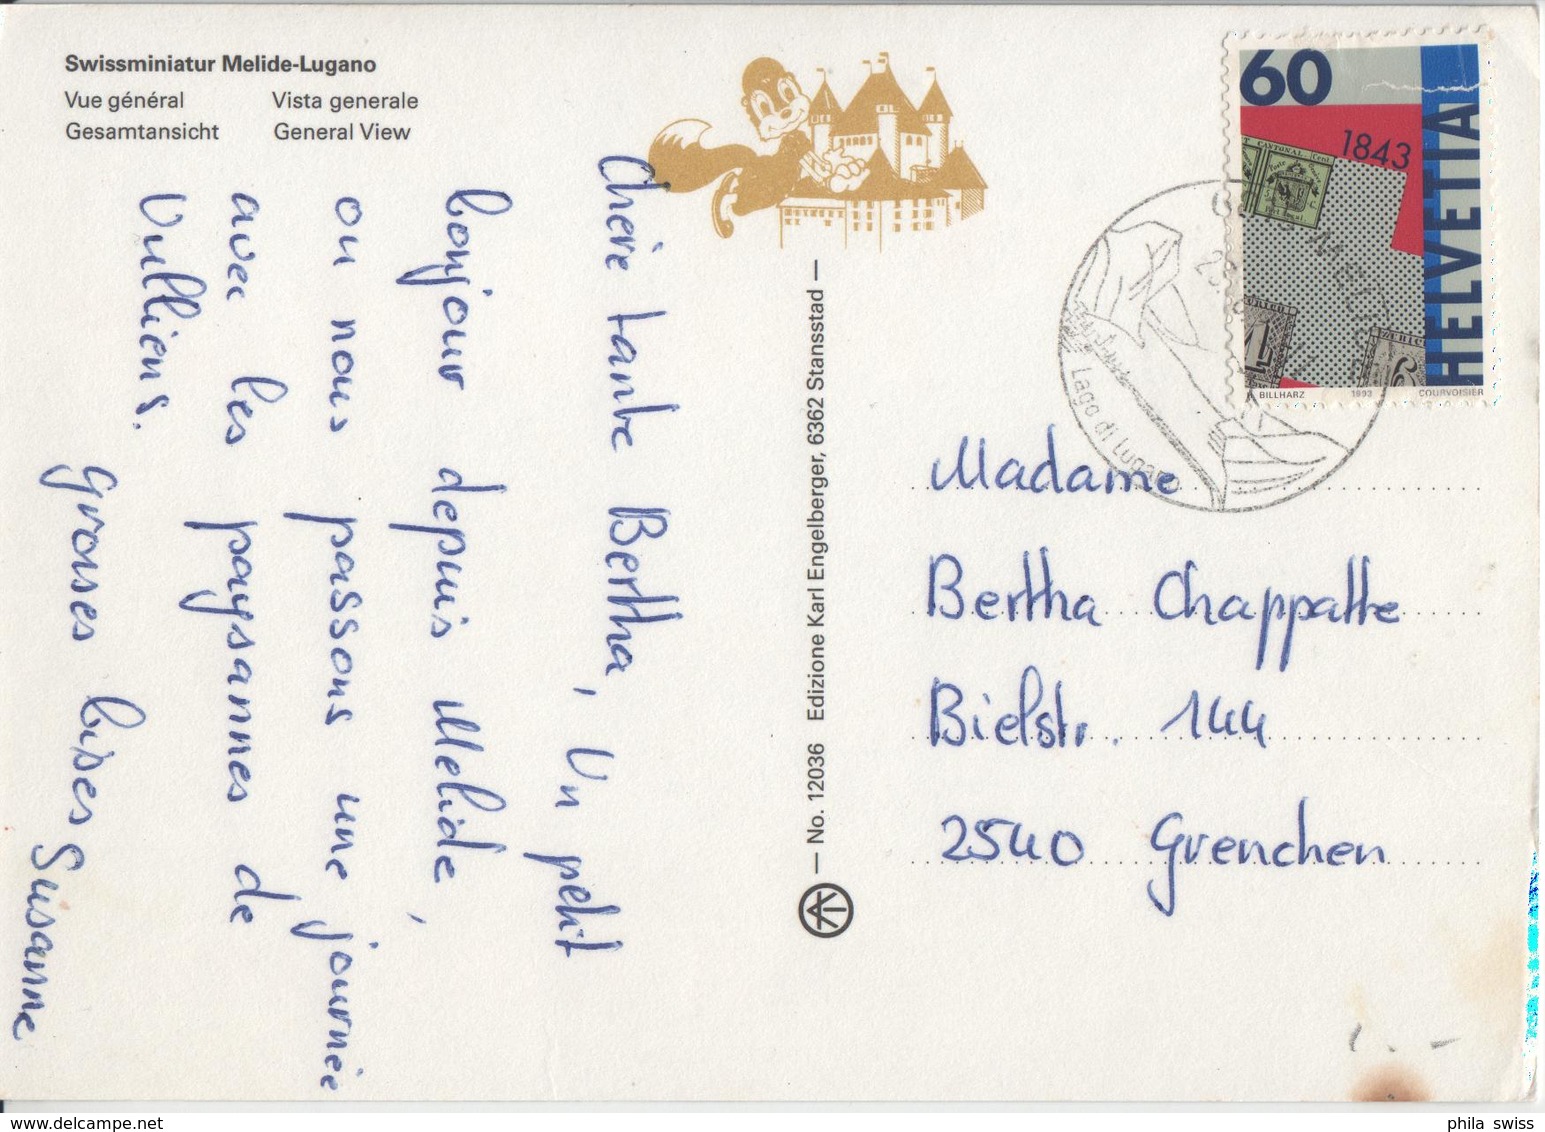 Swissminiatur Melide-Lugano
Vue général Vista generale
Gesamtansicht General View
Chère tante Bertha, Un petit
bonjour depuis Melide,
ou nous passons une journée
avec les paysannes de
Vulliens.
Grosses bises
Susanne
— No. 12036 Edizione Karl Engelberger, 6362 Stansstad —
60
1843
HELVETIA
BILLHARZ 1993 COURVOISIER
Lago di Lugano
Madame
Bertha Chappatte
Bielstr. 144
2540 Grenchen
www.delcampe.net
phila swiss